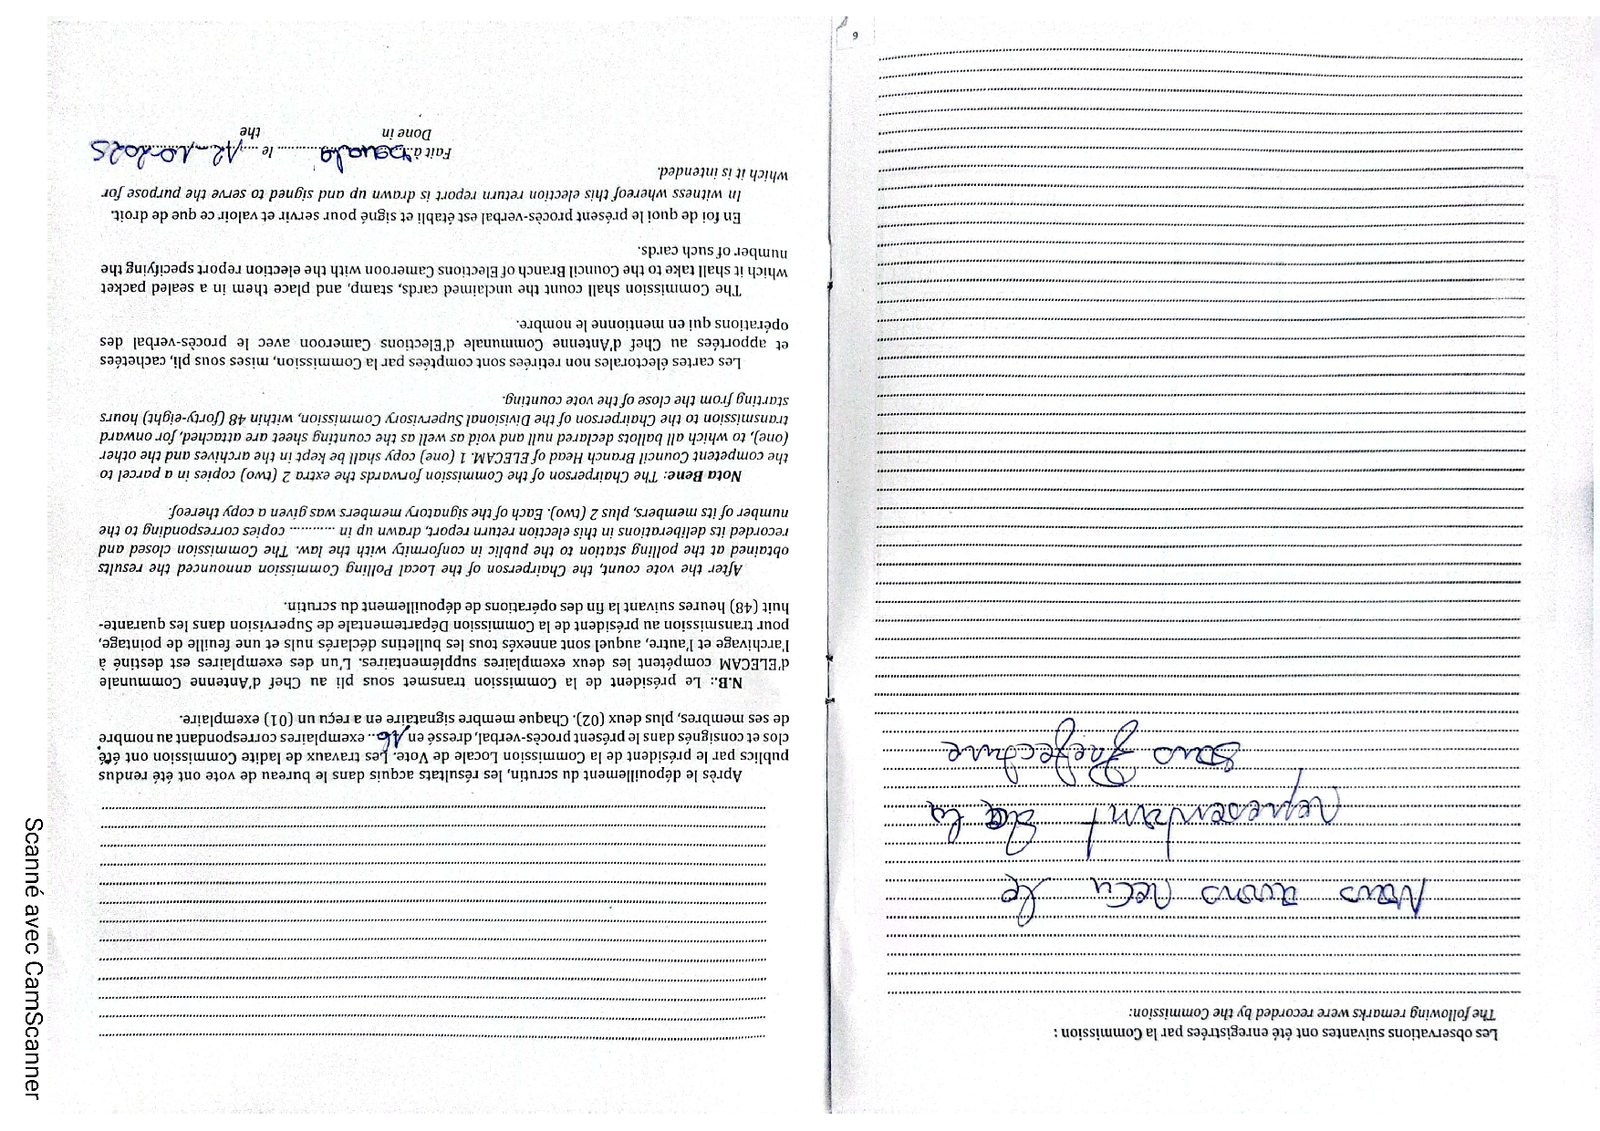 Les observations suivantes ont été enregistrées par la Commission :
The following remarks were recorded by the Commission:
Nous avons reçu le
représentant de la
sous Préfecture
9
Après le dépouillement du scrutin, les résultats acquis dans le bureau de vote ont été rendus
publics par le président de la Commission Locale de Vote. Les travaux de ladite Commission ont été
clos et consignés dans le présent procès-verbal, dressé en 16 exemplaires correspondant au nombre
de ses membres, plus deux (02). Chaque membre signataire en a reçu un (01) exemplaire.
N.B.: Le président de la Commission transmet sous pli au Chef d'Antenne Communale
d'ELECAM compétent les deux exemplaires supplémentaires. L'un des exemplaires est destiné à
l'archivage et l'autre, auquel sont annexés tous les bulletins déclarés nuls et une feuille de pointage,
pour transmission au président de la Commission Départementale de Supervision dans les quarante-
huit (48) heures suivant la fin des opérations de dépouillement du scrutin.
After the vote count, the Chairperson of the Local Polling Commission announced the results
obtained at the polling station to the public in conformity with the law. The Commission closed and
recorded its deliberations in this election return report, drawn up in ............ copies corresponding to the
number of its members, plus 2 (two). Each of the signatory members was given a copy thereof.
Nota Bene: The Chairperson of the Commission forwards the extra 2 (two) copies in a parcel to
the competent Council Branch Head of ELECAM. 1 (one) copy shall be kept in the archives and the other
(one), to which all ballots declared null and void as well as the counting sheet are attached, for onward
transmission to the Chairperson of the Divisional Supervisory Commission, within 48 (forty-eight) hours
starting from the close of the vote counting.
Les cartes électorales non retirées sont comptées par la Commission, mises sous pli, cachetées
et apportées au Chef d'Antenne Communale d'Elections Cameroon avec le procès-verbal des
opérations qui en mentionne le nombre.
The Commission shall count the unclaimed cards, stamp, and place them in a sealed packet
which it shall take to the Council Branch of Elections Cameroon with the election report specifying the
number of such cards.
En foi de quoi le présent procès-verbal est établi et signé pour servir et valoir ce que de droit.
In witness whereof this election return report is drawn up and signed to serve the purpose for
which it is intended.
Fait à Douala le 12-10-2025
Done in the
Scanné avec CamScanner